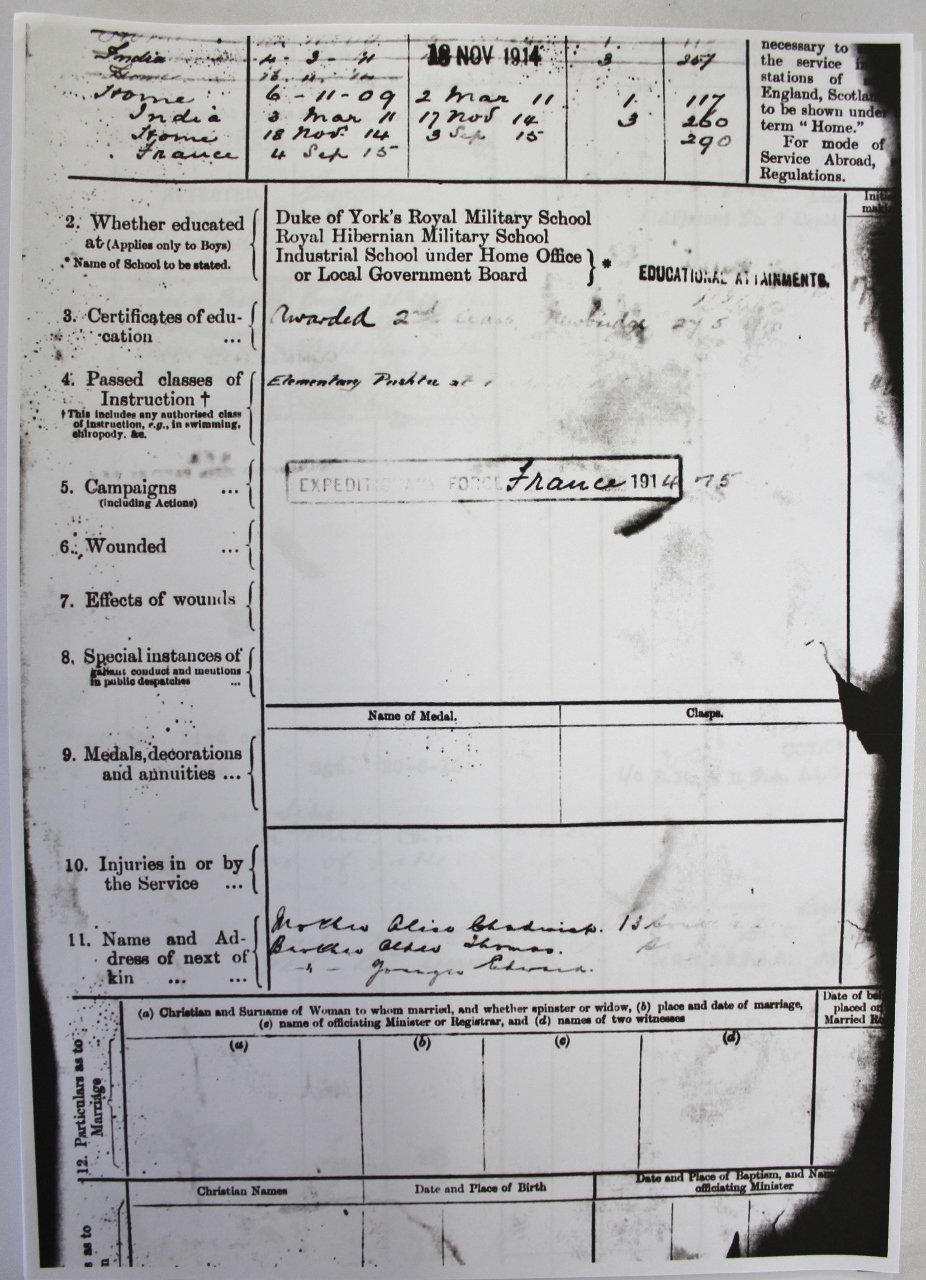 India 4 - 3 - 11 18 NOV 1914 3 257
Home
Home 6 - 11 - 09 2 Mar 11 1. 117
India 3 Mar 11 17 Nov 14 3 260
Home 18 Nov. 14 3 Sep 15 290
France 4 Sep 15
necessary to
the service in
stations of
England, Scotlan
to be shown under
term "Home."
For mode of
Service Abroad,
Regulations.
2. Whether educated
at (Applies only to Boys)
* Name of School to be stated.
Duke of York's Royal Military School
Royal Hibernian Military School
Industrial School under Home Office
or Local Government Board
*
EDUCATIONAL ATTAINMENTS.
3. Certificates of edu-
cation ...
Awarded 2nd Class, Newbridge 27 5
4. Passed classes of
Instruction †
† This includes any authorised class
of instruction, e.g., in swimming,
chiropody, &c.
Elementary Pushtu at
5. Campaigns ...
(including Actions)
EXPEDITIONARY FORCE France 1914 - 15
6. Wounded ...
7. Effects of wounds
8. Special instances of
gallant conduct and mentions
in public despatches ...
Name of Medal. Clasps.
9. Medals, decorations
and annuities ...
10. Injuries in or by
the Service ...
11. Name and Ad-
dress of next of
kin ... ...
Mother Alice Chadwick. 13
Brother Older Thomas.
-"- Younger Edward.
(a) Christian and Surname of Woman to whom married, and whether spinster or widow, (b) place and date of marriage,
(c) name of officiating Minister or Registrar, and (d) names of two witnesses
Date of
placed on
Married R
12. Particulars as to
Marriage
(a) (b) (c) (d)
Christian Names Date and Place of Birth
Date and Place of Baptism, and Name
officiating Minister
as to